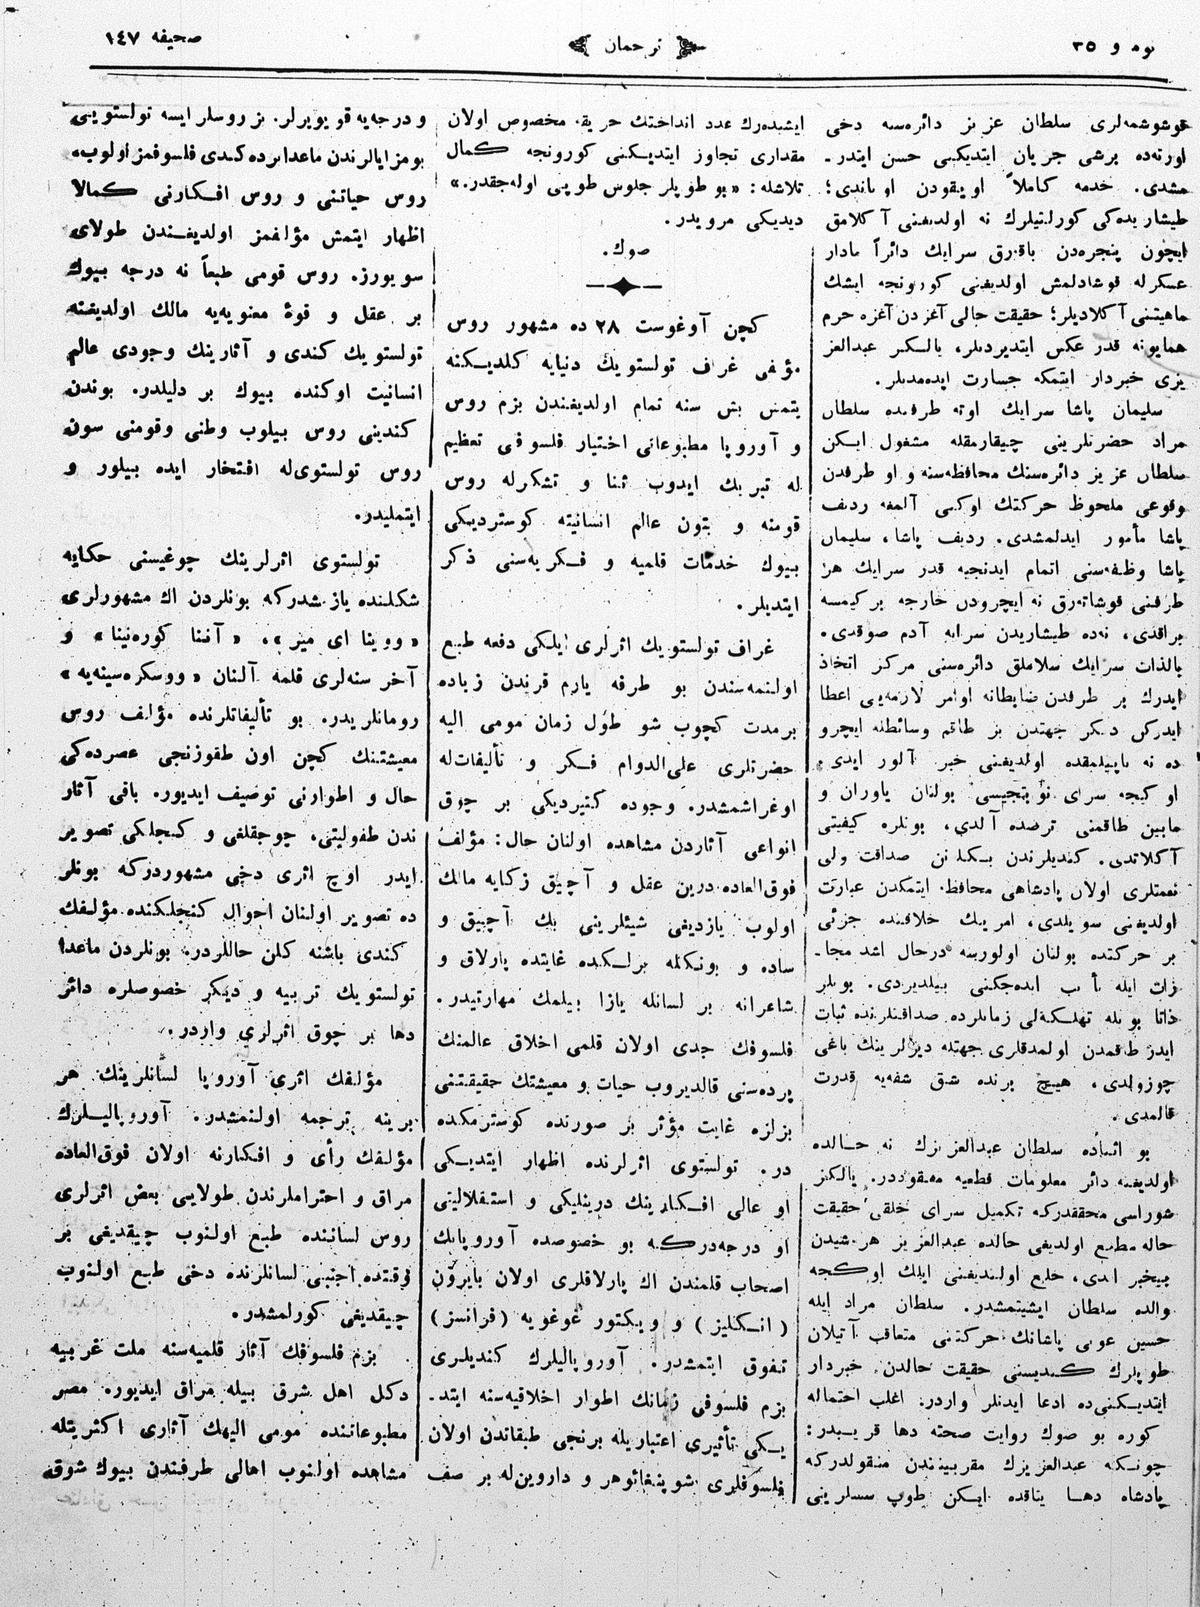 نومرو ٣٥
ترجمان
صحيفه ١٤٧
قوشوشمه‌لرى سلطان عزيز دائره‌سنه دخى
اورته‌ده برشى جريان ايتديكنى حسن ايتدر-
مشدى. خدمه كاملاً اويقودن اوياندى؛
طيشاريده‌كى كورلتيلرك نه اولديغنى آكلامق
ايچون پنجره‌دن باقرق سرايك دائراً مادار
عسكرله قوشادلمش اولديغنى كورونجه ايشك
ماهيتنى آكلاديلر؛ حقيقت حالى آغزدن آغزه حرم
همايونه قدر عكس ايتديرديلر، يالكز عبدالعز
يزى خبردار ايتمكه جسارت ايده‌مديلر.
سليمان پاشا سرايك اوته طرفنده سلطان
مراد حضرتلرينى چيقارمقله مشغول ايكن
سلطان عزيز دائره‌سنك محافظه‌سنه و او طرفدن
وقوعى ملحوظ حركتك اوكنى آلمغه رديف
پاشا مأمور ايدلمشدى. رديف پاشا، سليمان
پاشا وظيفه‌سنى اتمام ايدنجيه قدر سرايك هر
طرفنى قوشاته‌رق نه ايچرودن خارجه بركيمسه
براقدى، نه‌ده طيشاريدن سرايه آدم صوقدى.
بالذات سرايك سلاملق دائره‌سنى مركز اتخاذ
ايدرك بر طرفدن ضابطانه اوامر لازمه‌يى اعطا
ايدركن ديكر جهتدن بر طاقم وسائطله ايچرو
ده نه ياپيلمقده اولديغنى خبر آلور ايدى.
او كيجه سراى نوبتجيسى بولنان ياوران و
مابين طاقمنى ترصده آلدى، بونلره كيفيتى
آكلاتدى. كنديلرندن بكلنن صداقت ولى
نعمتلرى اولان پادشاهى محافظه ايتمكدن عبارت
اولديغنى سويلدى، امرينك خلافنده جزئى
بر حركتده بولنان اولورسه درحال اشد مجا-
زات ايله تأديب ايده‌جكنى بيلديردى. بونلر
ذاتا بويله تهلكه‌لى زمانلرده صداقتلرنده ثبات
ايدر طاقمدن اولمدقلرى جهتله ديزلرينك باغى
چوزولدى، هيچ برنده شق شفه‌يه قدرت
قالمدى.
بو اثناده سلطان عبدالعزيزك نه حالده
اولديغنه دائر معلومات قطعيه مفقوددر. يالكز
شوراسى محققدركه تكميل سراى خلقى حقيقت
حاله مطلع اولديغى حالده عبدالعزيز هرشيدن
بيخبر ايدى، خلع اولنديغنى ايلك اوكجه
والده سلطان ايشيتمشدر. سلطان مراد ايله
حسين عونى پاشانك حركتنى متعاقب آتيلان
طوپلرك كنديسنى حقيقت حالدن خبردار
ايتديكنى‌ده ادعا ايدنلر واردر. اغلب احتماله
كوره بو صوك روايت صحته دها قريبدر:
چونكه عبدالعزيزك مقربيندن منقولدركه
پادشاه دها يتاقده ايكن طوپ سسلرينى
ايشيده‌رك عدد انداختك حريقه مخصوص اولان
مقدارى تجاوز ايتديكنى كورونجه كمال
تلاشله: «بو طوپلر جلوس طوپى اوله‌جقدر.»
ديديكى مرويدر.
صوك.
كچن آوغوست ٢٨ ده مشهور روس
مؤلفى غراف تولستويك دنيايه كلديكنه
يتمش بش سنه تمام اولديغندن بزم روس
و آوروپا مطبوعاتى اختيار فلسوفى تعظيم
له تبريك ايدوب ثنا و تشكرله روس
قومنه و بتون عالم انسانيته كوسترديكى
بيوك خدمات قلميه و فكريه‌سنى ذكر
ايتديلر.
غراف تولستويك اثرلرى ايلكى دفعه طبع
اولنمه‌سندن بو طرفه يارم قرندن زياده
برمدت كچوب شو طول زمان مومى اليه
حضرتلرى على‌الدوام فكر و تأليفات‌له
اوغراشمشدر. وجوده كتيرديكى بر چوق
انواعى آثاردن مشاهده اولنان حال: مؤلف
فوق‌العاده درين عقل و آچيق زكايه مالك
اولوب يازديغى شيئلرينى بك آچيق و
ساده و بونكله برلكده غايتده پارلاق و
شاعرانه بر لسانله يازا بيلمك مهارتيدر.
فلسوفك جدى اولان قلمى اخلاق عالمنك
پرده‌سنى قالديروب حيات و معيشتك حقيقتنى
بزلره غايت مؤثر بر صورتده كوسترمكده
در. تولستوى اثرلرنده اظهار ايتديكى
او عالى افكارينك درينليكى و استقلاليتى
او درجه‌دركه بو خصوصده آوروپانك
اصحاب قلمندن اك پارلاقلرى اولان بايرون
(انكليز) و ويكتور غوغويه (فرانسز)
تفوق ايتمشدر. آوروپاليلرك كنديلرى
بزم فلسوفى زمانك اطوار اخلاقيه‌سنه ايتد-
يكى تأثيرى اعتباريله برنجى طبقاتدن اولان
فلسوفلرى شوپنغائوهر و داروين‌له بر صف
و درجه‌يه قويويرلر. بز روسلر ايسه تولستويى
بومزايالرندن ماعدابرده كندى فلسوفمز اولوب،
روس حياتنى و روس افكارنى كمالا
اظهار ايتمش مؤلفمز اولديغندن طولاى
سويورز. روس قومى طبعاً نه درجه بيوك
بر عقل و قوۀ معنويه‌يه مالك اولديغنه
تولستويك كندى و آثارينك وجودى عالم
انسانيت اوكنده بيوك بر دليلدر. بوندن
كندينى روس بيلوب وطنى وقومنى سون
روس تولستوى‌له افتخار ايده بيلور و
ايتمليدر.
تولستوى اثرلرينك چوغيسنى حكايه
شكلنده يازمشدركه بونلردن اك مشهورلرى
«ووينا اى مير»، «آننا كوره‌نينا» و
آخر سنه‌لرى قلمه آلنان «ووسكره‌سينه‌يه»
رومانلريدر. بو تأليفاتلرنده مؤلف روس
معيشتنك كچن اون طقوزنجى عصرده‌كى
حال و اطوارنى توصيف ايديور. باقى آثار
ندن طفوليتى، چوجقلغى و كنجلكى تصوير
ايدر اوچ اثرى دخى مشهوردركه بونلر
ده تصوير اولنان احوال كنجلكنده مؤلفك
كندى باشنه كلن حاللردر. بونلردن ماعدا
تولستويك تربيه و ديكر خصوصلره دائر
دها بر چوق اثرلرى واردر.
مؤلفك اثرى آوروپا لسانلرينك هر
برينه ترجمه اولنمشدر. آوروپاليلرك
مؤلفك رأى و افكارنه اولان فوق‌العاده
مراق و احتراملرندن طولايى بعض اثرلرى
روس لساننده طبع اولنوب چيقديغى بر
وقتده اجنبى لسانلرنده دخى طبع اولنوب
چيقديغى كورلمشدر.
بزم فلسوفك آثار قلميه‌سنه ملت غربيه
دكل اهل شرق بيله مراق ايديور. مصر
مطبوعاتنده مومى اليهك آثارى اكثريتله
مشاهده اولنوب اهالى طرفندن بيوك شوق